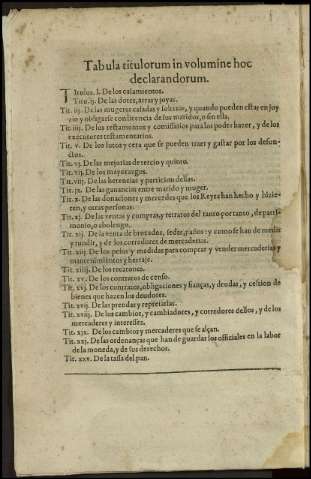 Tabula titulorum in volumine hoc
declarandorum.
Titulus. I. De los casamientos.
Titu. ij. De las dotes, arras y joyas.
Tit. iij. De las mugeres casadas y solteras, y quando pueden estar en juy
zio y obligarse con licencia de sus maridos, o sin ella.
Tit. iiij. De los testamentos y comissarios para los poder hazer, y de los
executores testamentarios.
Tit. v. De los lutos y cera que se pueden traer y gastar por los defun-
ctos.
Tit. vj. De las mejorias de tercio y quinto.
Tit. vij. De los mayorazgos.
Tit. viij. De las herencias y particion dellas.
Tit. ix. De las ganancias entre marido y muger.
Tit. x. De las donaciones y mercedes que los Reyes han hecho y hizie-
ren, y otras personas.
Tit. xj. De las ventas y compras, y retratos del tanto por tanto, de patri-
monio, o abolengo.
Tit. xij. De la venta de brocados, sedas, paños: y como se han de medir
y tundir, y de los corredores de mercaderias.
Tit. xiij. De los pesos y medidas para comprar y vender mercaderias y
mantenimientos y herraje.
Tit. xiiij. De los recatones.
Tit. xv. De los contratos de censo.
Tit. xvj. De los contratos, obligaciones y fianças, y deudas, y cession de
bienes que hazen los deudores.
Tit. xvij. De las prendas y represarias.
Tit. xviij. De los cambios, y cambiadores, y corredores dellos, y de los
mercaderes y interesses.
Tit. xix. De los cambios y mercaderes que se alçan.
Tit. xxj. De las ordenanças que han de guardar los officiales en la labor
de la moneda, y de sus derechos.
Tit. xxv. De la tassa del pan.